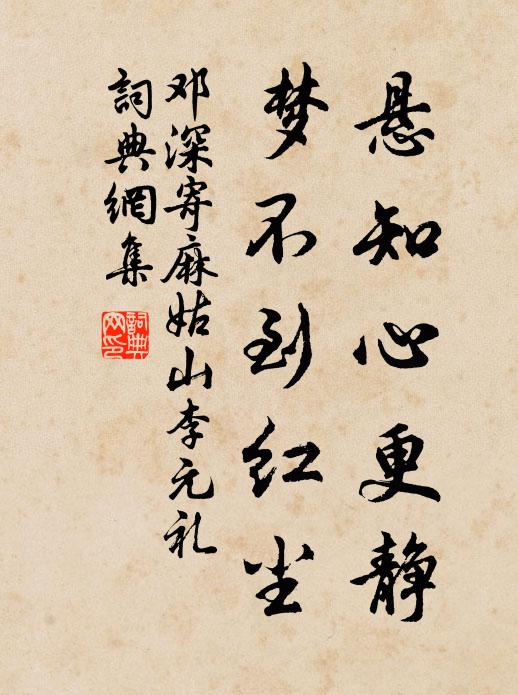 悬知心更静
梦不到红尘
邓深寄麻姑山李元礼
詞典網集